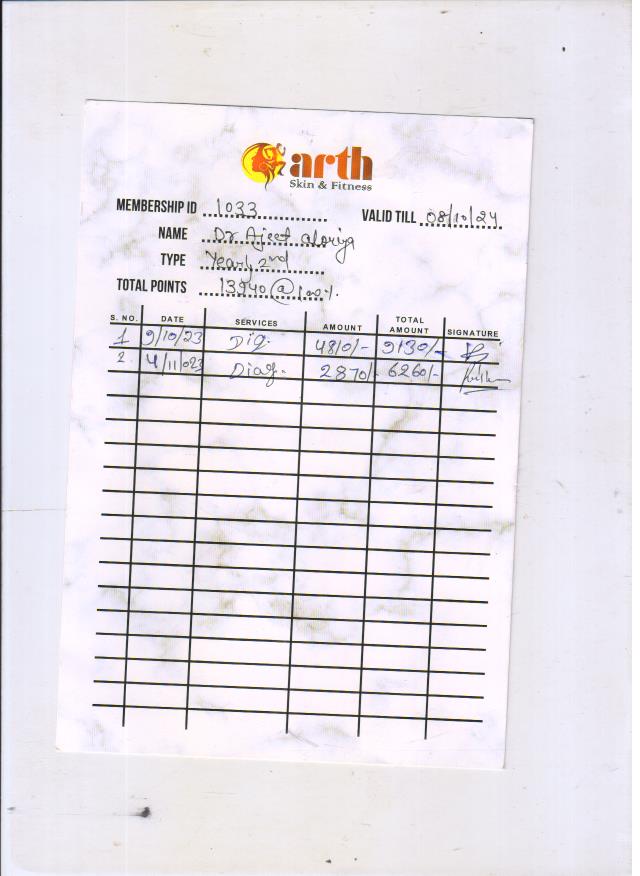 arth
Skin & Fitness
MEMBERSHIP ID 1033 VALID TILL 08/10/24
NAME Dr. Ajeet
TYPE Year 2nd
TOTAL POINTS 13940 @ 100%.
S. NO. DATE SERVICES AMOUNT TOTAL AMOUNT SIGNATURE
1 9/10/23 Dig. 4810/- 9130/-
2. 4/11/023 Diag. 2870/- 6260/-